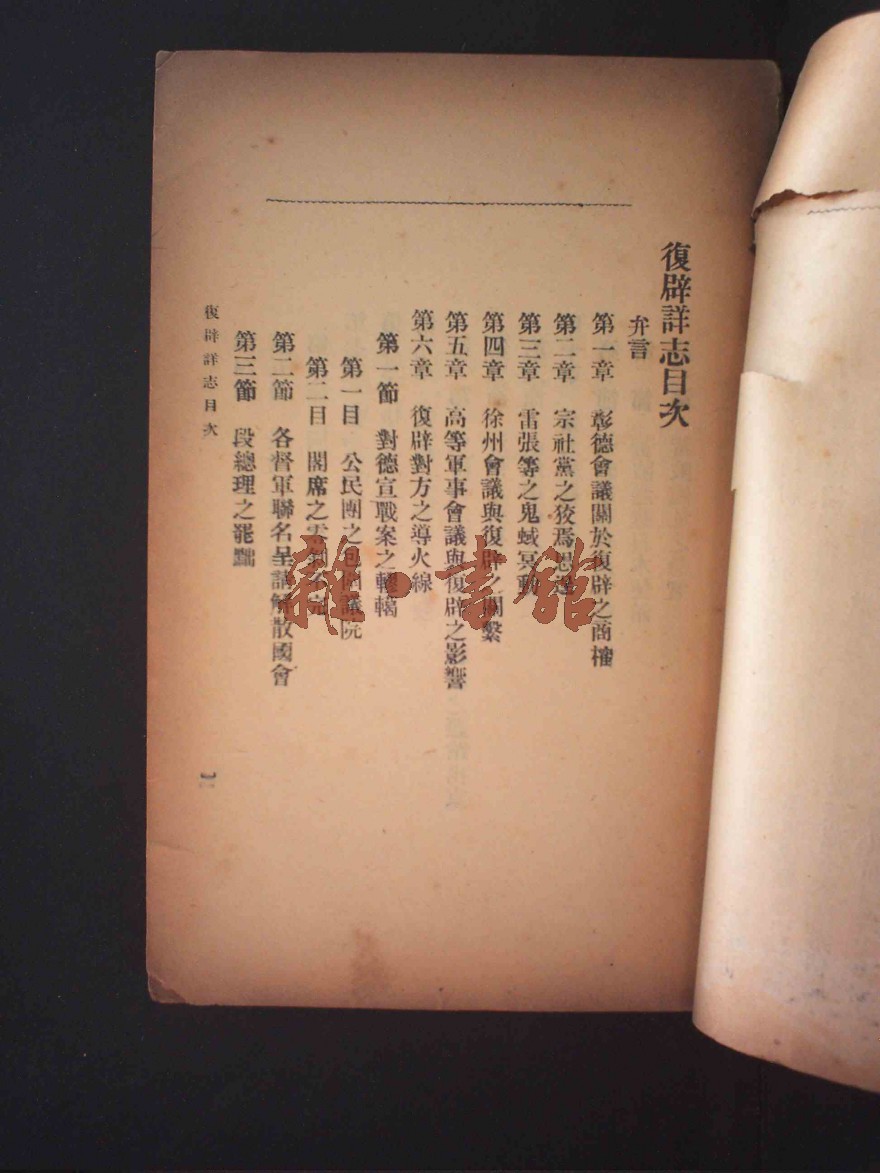 復辟詳志目次
弁言
第一章 彰德會議關於復辟之商榷
第二章 宗社黨之狡焉思逞
第三章 雷張等之鬼蜮冥動
第四章 徐州會議與復辟之關繫
第五章 高等軍事會議與復辟之影響
第六章 復辟對方之導火線
第一節 對德宣戰案之轇轕
第一目 公民團之包圍議院
第二目 閣席之零不完
第二節 各督軍聯名呈請解散國會
第三節 段總理之罷黜
復辟詳志目次
雜·書館